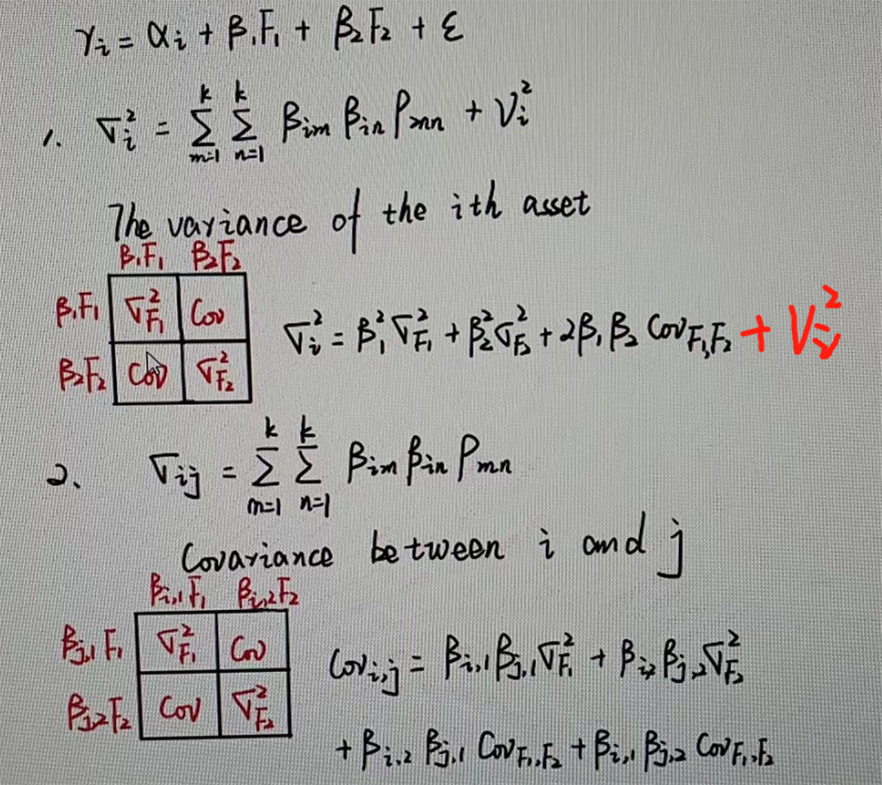 γᵢ = αᵢ + β₁F₁ + β₂F₂ + ε
1. σᵢ² = Σₘ₌₁ᵏ Σₙ₌₁ᵏ βᵢₘ βᵢₙ ρₘₙ + Vᵢ²
The variance of the ith asset
β₁F₁ β₂F₂
β₁F₁ σ²F₁ Cov
β₂F₂ Cov σ²F₂
σᵢ² = β₁²σ²F₁ + β₂²σ²F₂ + 2β₁β₂ CovF₁,F₂ + Vᵢ²
2、 σᵢⱼ = Σₘ₌₁ᵏ Σₙ₌₁ᵏ βᵢₘ βᵢₙ ρₘₙ
Covariance between i and j
βᵢ,₁F₁ βᵢ,₂F₂
βⱼ,₁F₁ σ²F₁ Cov
βⱼ,₂F₂ Cov σ²F₂
Covᵢ,ⱼ = βᵢ,₁βⱼ,₁σ²F₁ + βᵢ,₂βⱼ,₂σ²F₂
+ βᵢ,₂ βⱼ,₁ CovF₁,F₂ + βᵢ,₁ βⱼ,₂ CovF₁,F₂